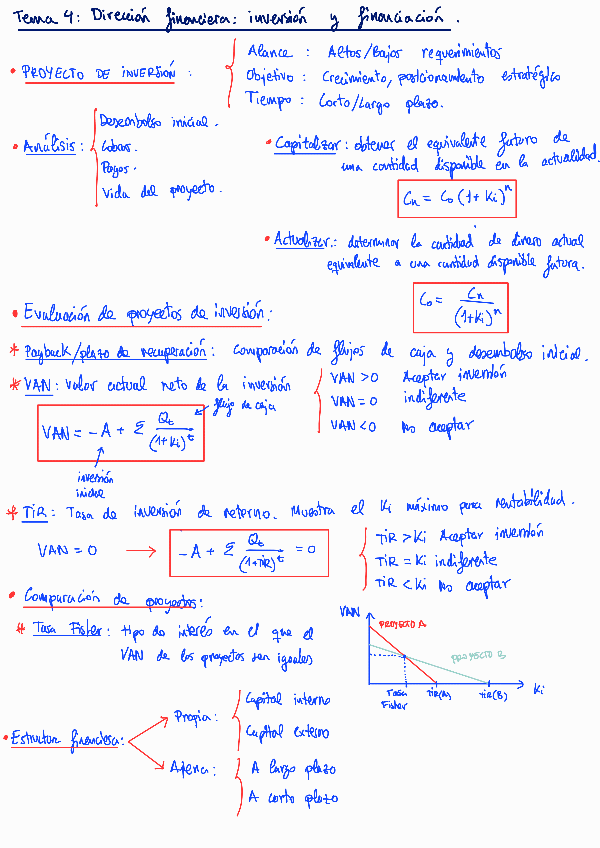 Tema 4: Dirección financiera: inversión y financiación.
• PROYECTO DE INVERSIÓN :
Alcance : Altos/Bajos requerimientos
Objetivo : Crecimiento, posicionamiento estratégico
Tiempo : Corto/Largo plazo.
• Análisis :
Desembolso inicial.
Cobros.
Pagos.
Vida del proyecto.
• Capitalizar : obtener el equivalente futuro de
una cantidad disponible en la actualidad.
Cn = C0 (1+Ki)^n
• Actualizar : determinar la cantidad de dinero actual
equivalente a una cantidad disponible futura.
C0 = Cn / (1+Ki)^n
• Evaluación de proyectos de inversión:
* Payback/plazo de recuperación : comparación de flujos de caja y desembolso inicial.
* VAN : Valor actual neto de la inversión
VAN > 0 Aceptar inversión
VAN = 0 indiferente
VAN < 0 no aceptar
flujo de caja
VAN = -A + Σ Qt / (1+Ki)^t
inversión
inicial
* TIR : Tasa de inversión de retorno. Muestra el Ki máximo para rentabilidad.
VAN = 0 → -A + Σ Qt / (1+TIR)^t = 0
TIR > Ki Aceptar inversión
TIR = Ki indiferente
TIR < Ki no aceptar
• Comparación de proyectos:
* Tasa Fisher : tipo de interés en el que el
VAN de los proyectos son iguales
VAN
PROYECTO A
PROYECTO B
Tasa
Fisher
TIR(A)
TIR(B)
Ki
• Estructura financiera:
Propia :
Capital interno
Capital externo
Ajena :
A largo plazo
A corto plazo